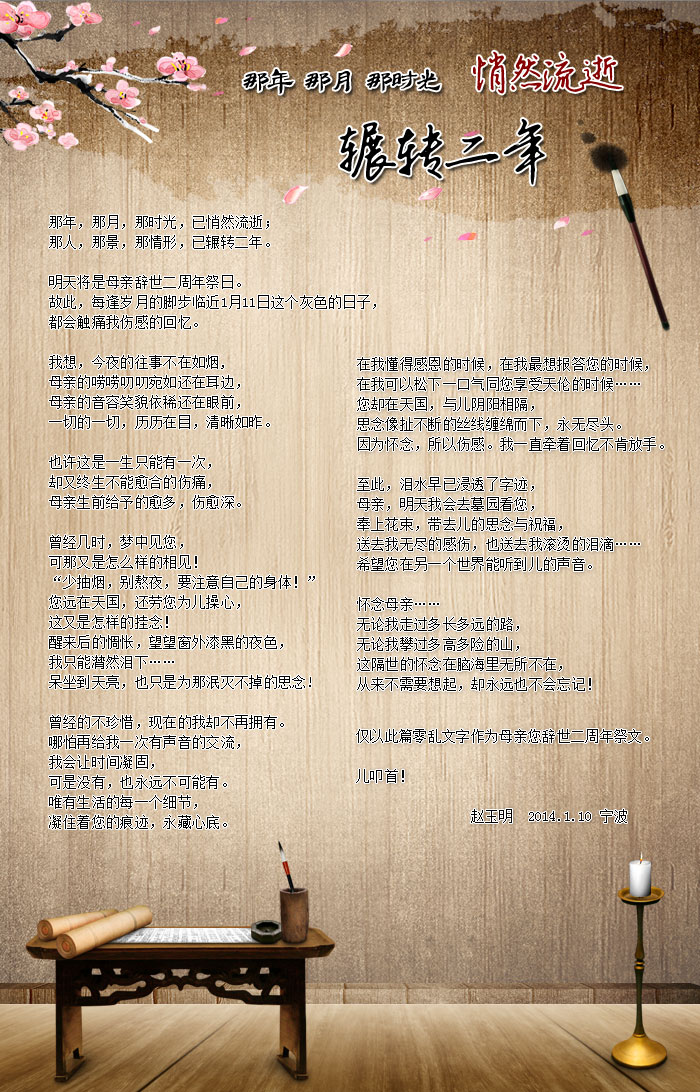 那年 那月 那时光 悄然流逝
辗转二年
那年，那月，那时光，已悄然流逝；
那人，那景，那情形，已辗转二年。
明天将是母亲辞世二周年祭日。
故此，每逢岁月的脚步临近1月11日这个灰色的日子，
都会触痛我伤感的回忆。
我想，今夜的往事不在如烟，
母亲的唠唠叨叨宛如还在耳边，
母亲的音容笑貌依稀还在眼前，
一切的一切，历历在目，清晰如昨。
也许这是一生只能有一次，
却又终生不能愈合的伤痛，
母亲生前给予的愈多，伤愈深。
曾经几时，梦中见您，
可那又是怎么样的相见！
“少抽烟，别熬夜，要注意自己的身体！”
您远在天国，还劳您为儿操心，
这又是怎样的挂念！
醒来后的惆怅，望望窗外漆黑的夜色，
我只能潸然泪下……
呆坐到天亮，也只是为那泯灭不掉的思念！
曾经的不珍惜，现在的我却不再拥有。
哪怕再给我一次有声音的交流，
我会让时间凝固，
可是没有，也永远不可能有。
唯有生活的每一个细节，
凝住着您的痕迹，永藏心底。
在我懂得感恩的时候，在我最想报答您的时候，
在我可以松下一口气同您享受天伦的时候……
您却在天国，与儿阴阳相隔，
思念像扯不断的丝线缠绵而下，永无尽头。
因为怀念，所以伤感。我一直牵着回忆不肯放手。
至此，泪水早已浸透了字迹，
母亲，明天我会去墓园看您，
奉上花束，带去儿的思念与祝福，
送去我无尽的感伤，也送去我滚烫的泪滴……
希望您在另一个世界能听到儿的声音。
怀念母亲……
无论我走过多长多远的路，
无论我攀过多高多险的山，
这隔世的怀念在脑海里无所不在，
从来不需要想起，却永远也不会忘记！
仅以此篇零乱文字作为母亲您辞世二周年祭文。
儿叩首！
赵玉明 2014.1.10 宁波